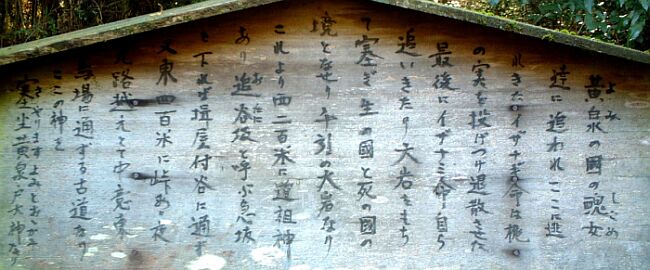 黄泉の國の醜女
よみ しこめ
達に追われ ここに逃
れきたイザナギ命は桃
の実を投げつけ退散させた
最後にイザナミ命自ら
追いきたり大岩をもち
て塞ぎ生の國と死の國の
境を造り千引の大岩なり
これより西二百米に道祖神
あり 追谷坂と呼ぶ急坂
おいだに
を下れば揖屋付谷に通ず
又東四百米に峠あり夜
見路越えとて中意東
馬場に通ずる古道なり
ここの神を
塞坐黄泉戸大神なり
さやりますよみどおおかみ